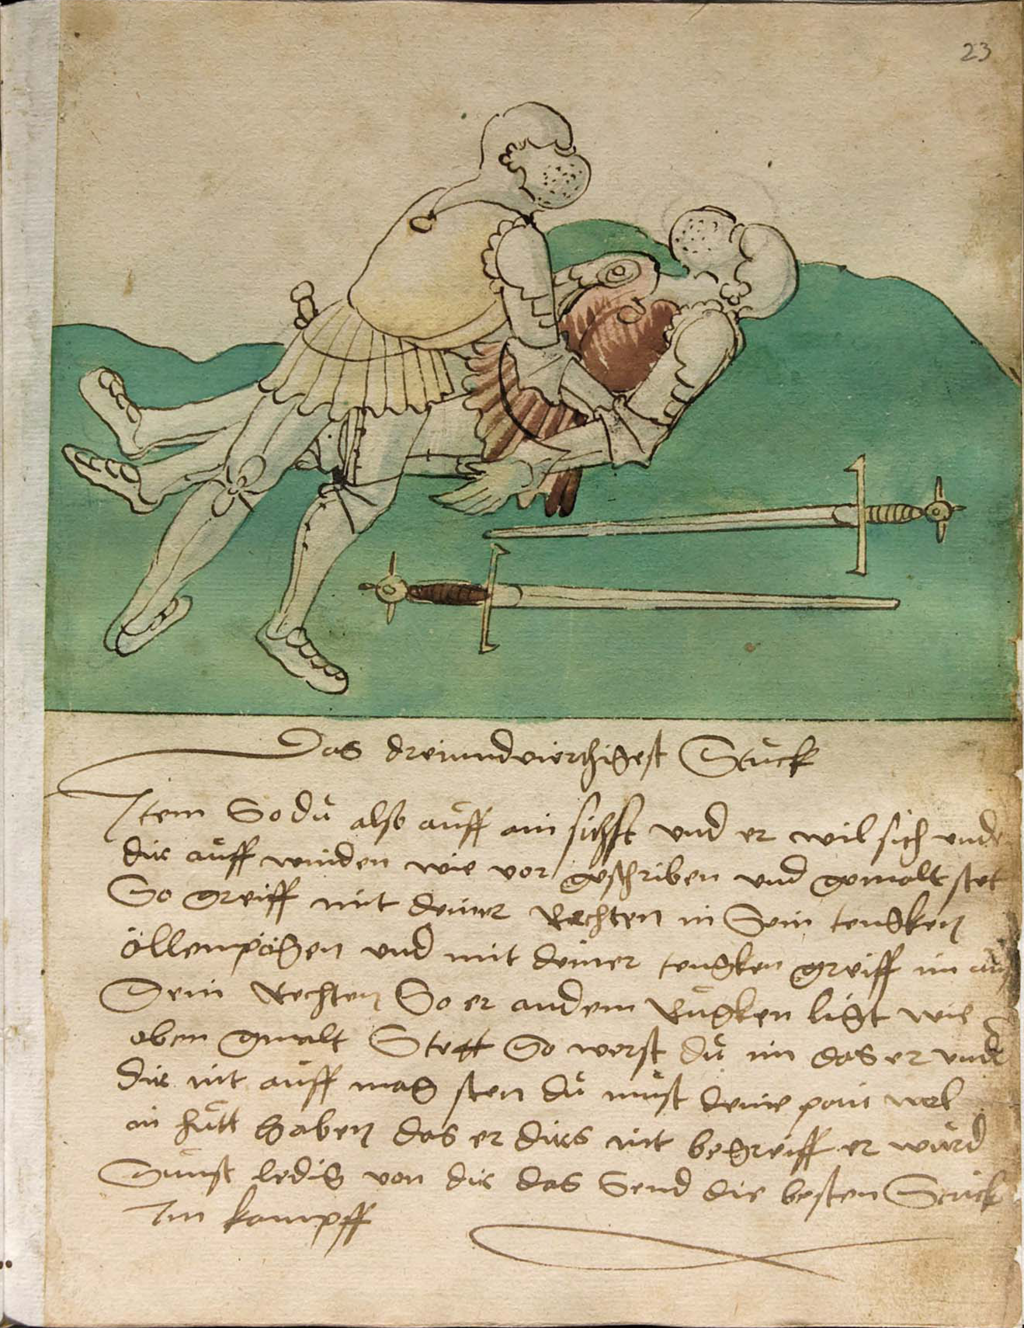 23
Das dreiundvierzigest Stuck
Item So du also auff am sichst und er wil sich unde
dir auff winden wie vor geschriben und gemalt stet
So greiff mit deiner Rechten in Sein tengken
Ellenpogen und mit deiner tengken greiff im auf
Sein Rechten So er an dem Rugken ligt wie
oben gmalt Stett So werst du im das er under
dir nit auff mag sten du must deine pain wol
in hutt haben das er dirs nit begreiff er wurd
Sunst ledig von dir das Send die besten Stuck
Im kampff